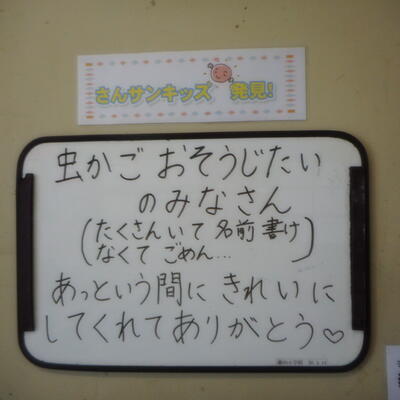 さんサンキッズ 発見!
虫かご おそうじたい
のみなさん
(たくさんいて 名前書け
なくて ごめん…)
あっという間に きれいに
してくれてありがとう♡